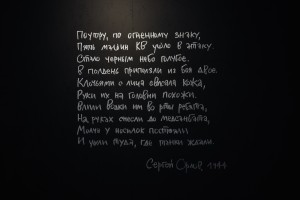 Поутру, по огненному знаку,
Пять машин КВ ушло в атаку.
Стало черным небо голубое.
В полдень приползли из боя двое.
Клочьями с лица свисала кожа,
Руки их на головни похожи.
Влили водки им во рты ребята,
На руках снесли до медсанбата,
Молча у носилок постояли
И ушли туда, где танки ждали.
Сергей Орлов 1941